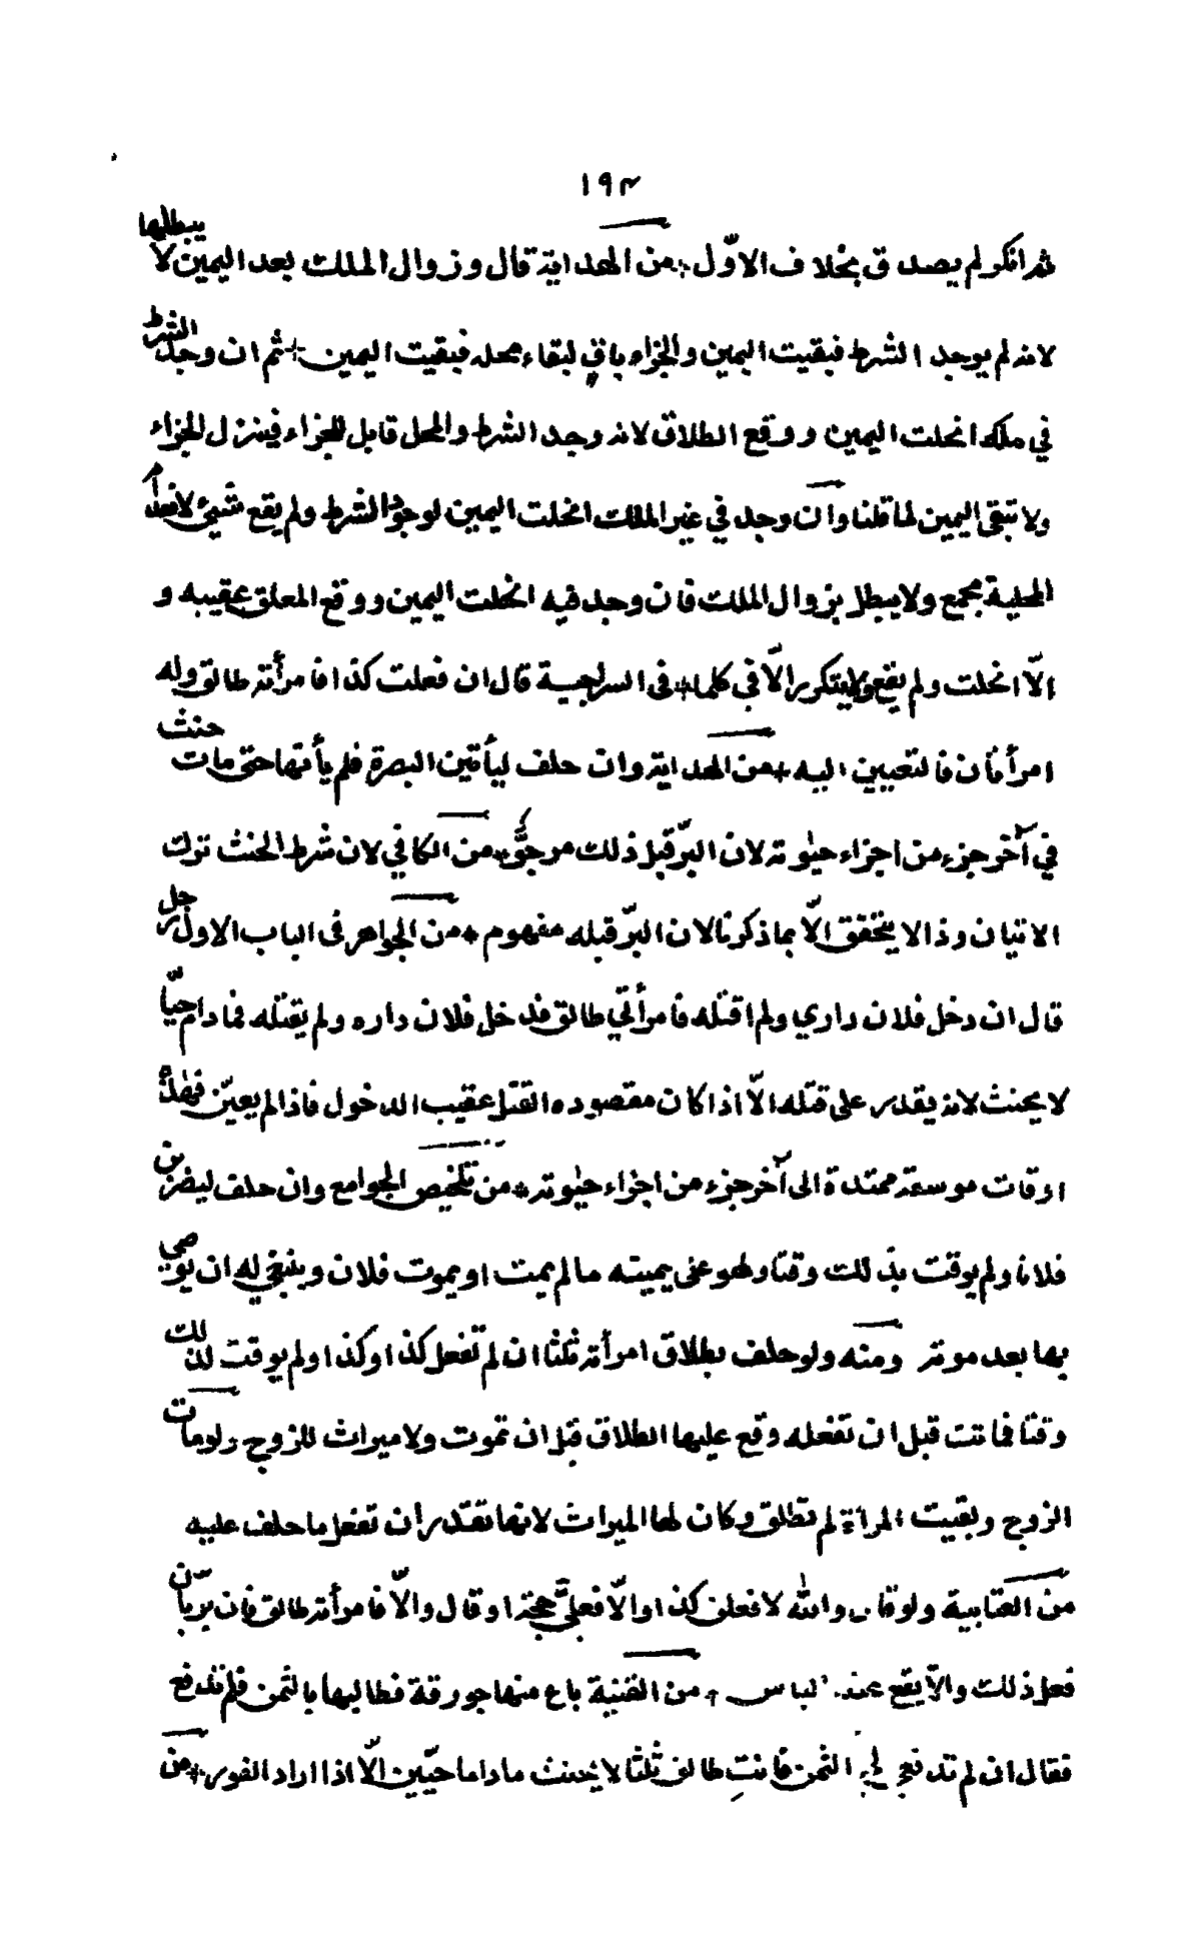 ١٩٣
ثم انكر لم يصدق بخلاف الاوّل ؞ من الهداية قال وزوال الملك بعد اليمين لا يبطلها
لانه لم يوجد الشرط فبقيت اليمين والجزاء باقٍ لبقاء محله فبقيت اليمين ثم ان وجد الشرط
في ملكه انحلت اليمين ووقع الطلاق لانه وجد الشرط والمحل قابل للجزاء فينزل الجزاء
ولا تبقى اليمين لما قلنا وان وجد في غير الملك انحلت اليمين لوجود الشرط ولم يقع شيئ لانعدام
المحلية مجمع ولا يبطل بزوال الملك فان وجد فيه انحلت اليمين ووقع المعلق عقيبه و
الّا انحلت ولم يقع ولا يتكرر الّا في كلما ؞ فى السراجية قال ان فعلت كذا فامرأته طالق وله
امرأتان فالتعيين اليه ؞ من الهداية وان حلف ليأتين البصرة فلم يأتها حتى مات حنث
في آخر جزء من اجزاء حيوته لان البرّ قبل ذلك مرجوّ ؞ من الكافي لان شرط الحنث ترك
الاتيان وذا لا يتحقق الّا بما ذكرنا لان البرّ قبله مفهوم ؞ من الجواهر فى الباب الاول رجل
قال ان دخل فلان داري ولم اقتله فامرأتي طالق فدخل فلان داره ولم يقتله فما دام حيّا
لا يحنث لانه يقدر على قتله الّا اذا كان مقصوده القتل عقيب الدخول فاذا لم يعيّن فهذا
اوقات موسعة ممتدة الى آخر جزء من اجزاء حيوته ؞ من تلخيص الجوامع وان حلف ليضربن
فلانا ولم يوقت بذلك وقتا ولهو عنى يمينه ما لم يمت او يموت فلان وينبغي له ان يوصي
بها بعد موته ومنه ولو حلف بطلاق امرأته ثلثا ان لم تفعل كذا وكذا ولم يوقت لذلك
وقتا فماتت قبل ان تفعله وقع عليها الطلاق قبل ان تموت ولا ميراث للزوج ولو مات
الزوج وبقيت المرأة لم تطلق وكان لها الميراث لانها تقدر ان تفعل ما حلف عليه
من العتابية ولو قال والله لافعلن كذا والّا فعليّ حجة او قال والّا فامرأته طالق فان برّ بأن
فعل ذلك والّا يقع عند الباس ؞ من القنية باع منها جورقة فطالبها بالثمن فلم تدفع
فقال ان لم تدفعي لي الثمن فانتِ طالق ثلثا لا يحنث ما داما حيّين الّا اذا اراد الفور ؞ من